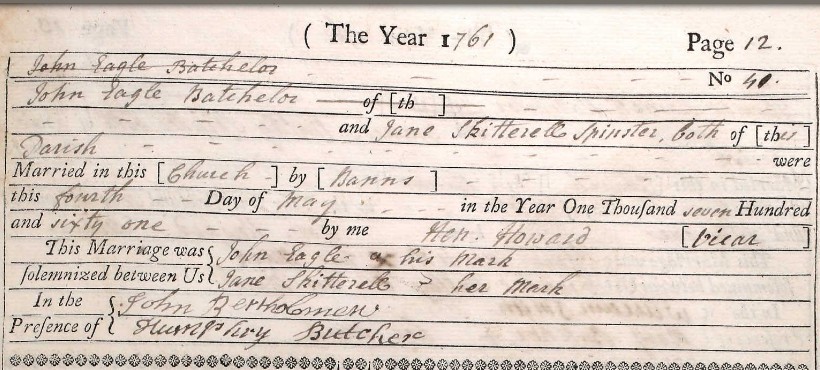 ( The Year 1761 ) Page 12.
John Eagle Batchelor
No 40.
John Eagle Batchelor of [th ]
and Jane Skitterell Spinster, both of [this]
Parish were
Married in this [Church] by [Banns ]
this fourth Day of May in the Year One Thousand seven Hundred
and sixty one by me Hen. Howard [Vicar ]
This Marriage was { John Eagle his Mark
solemnized between Us { Jane Skitterell her Mark
In the { John Bertholmew
Presence of { Humphry Butcher